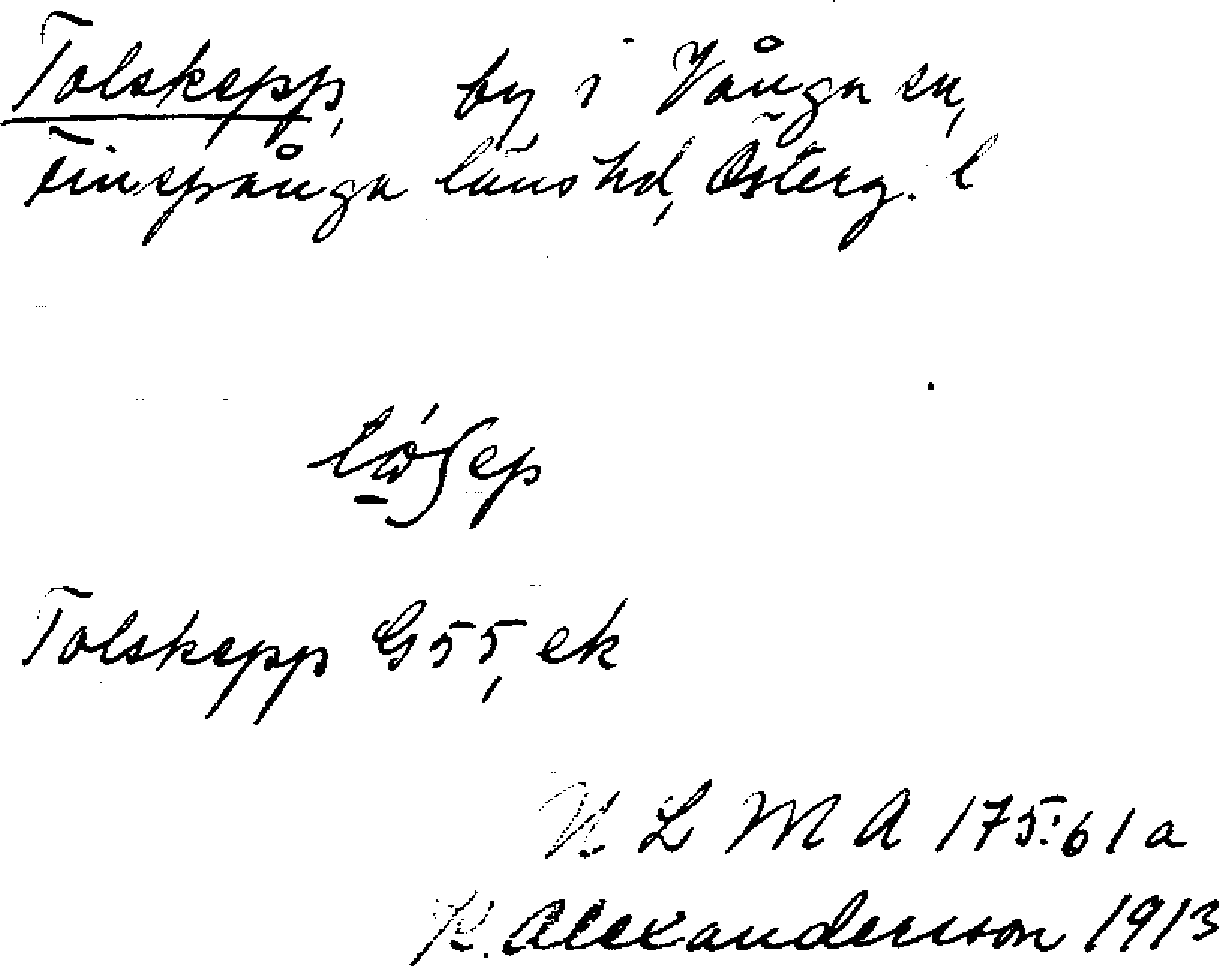 Tolskepp, by i Vånga sn,
Finspånga läns hd, Österg. l
Tolskepp G55, ek
K. Alexanderson 1913